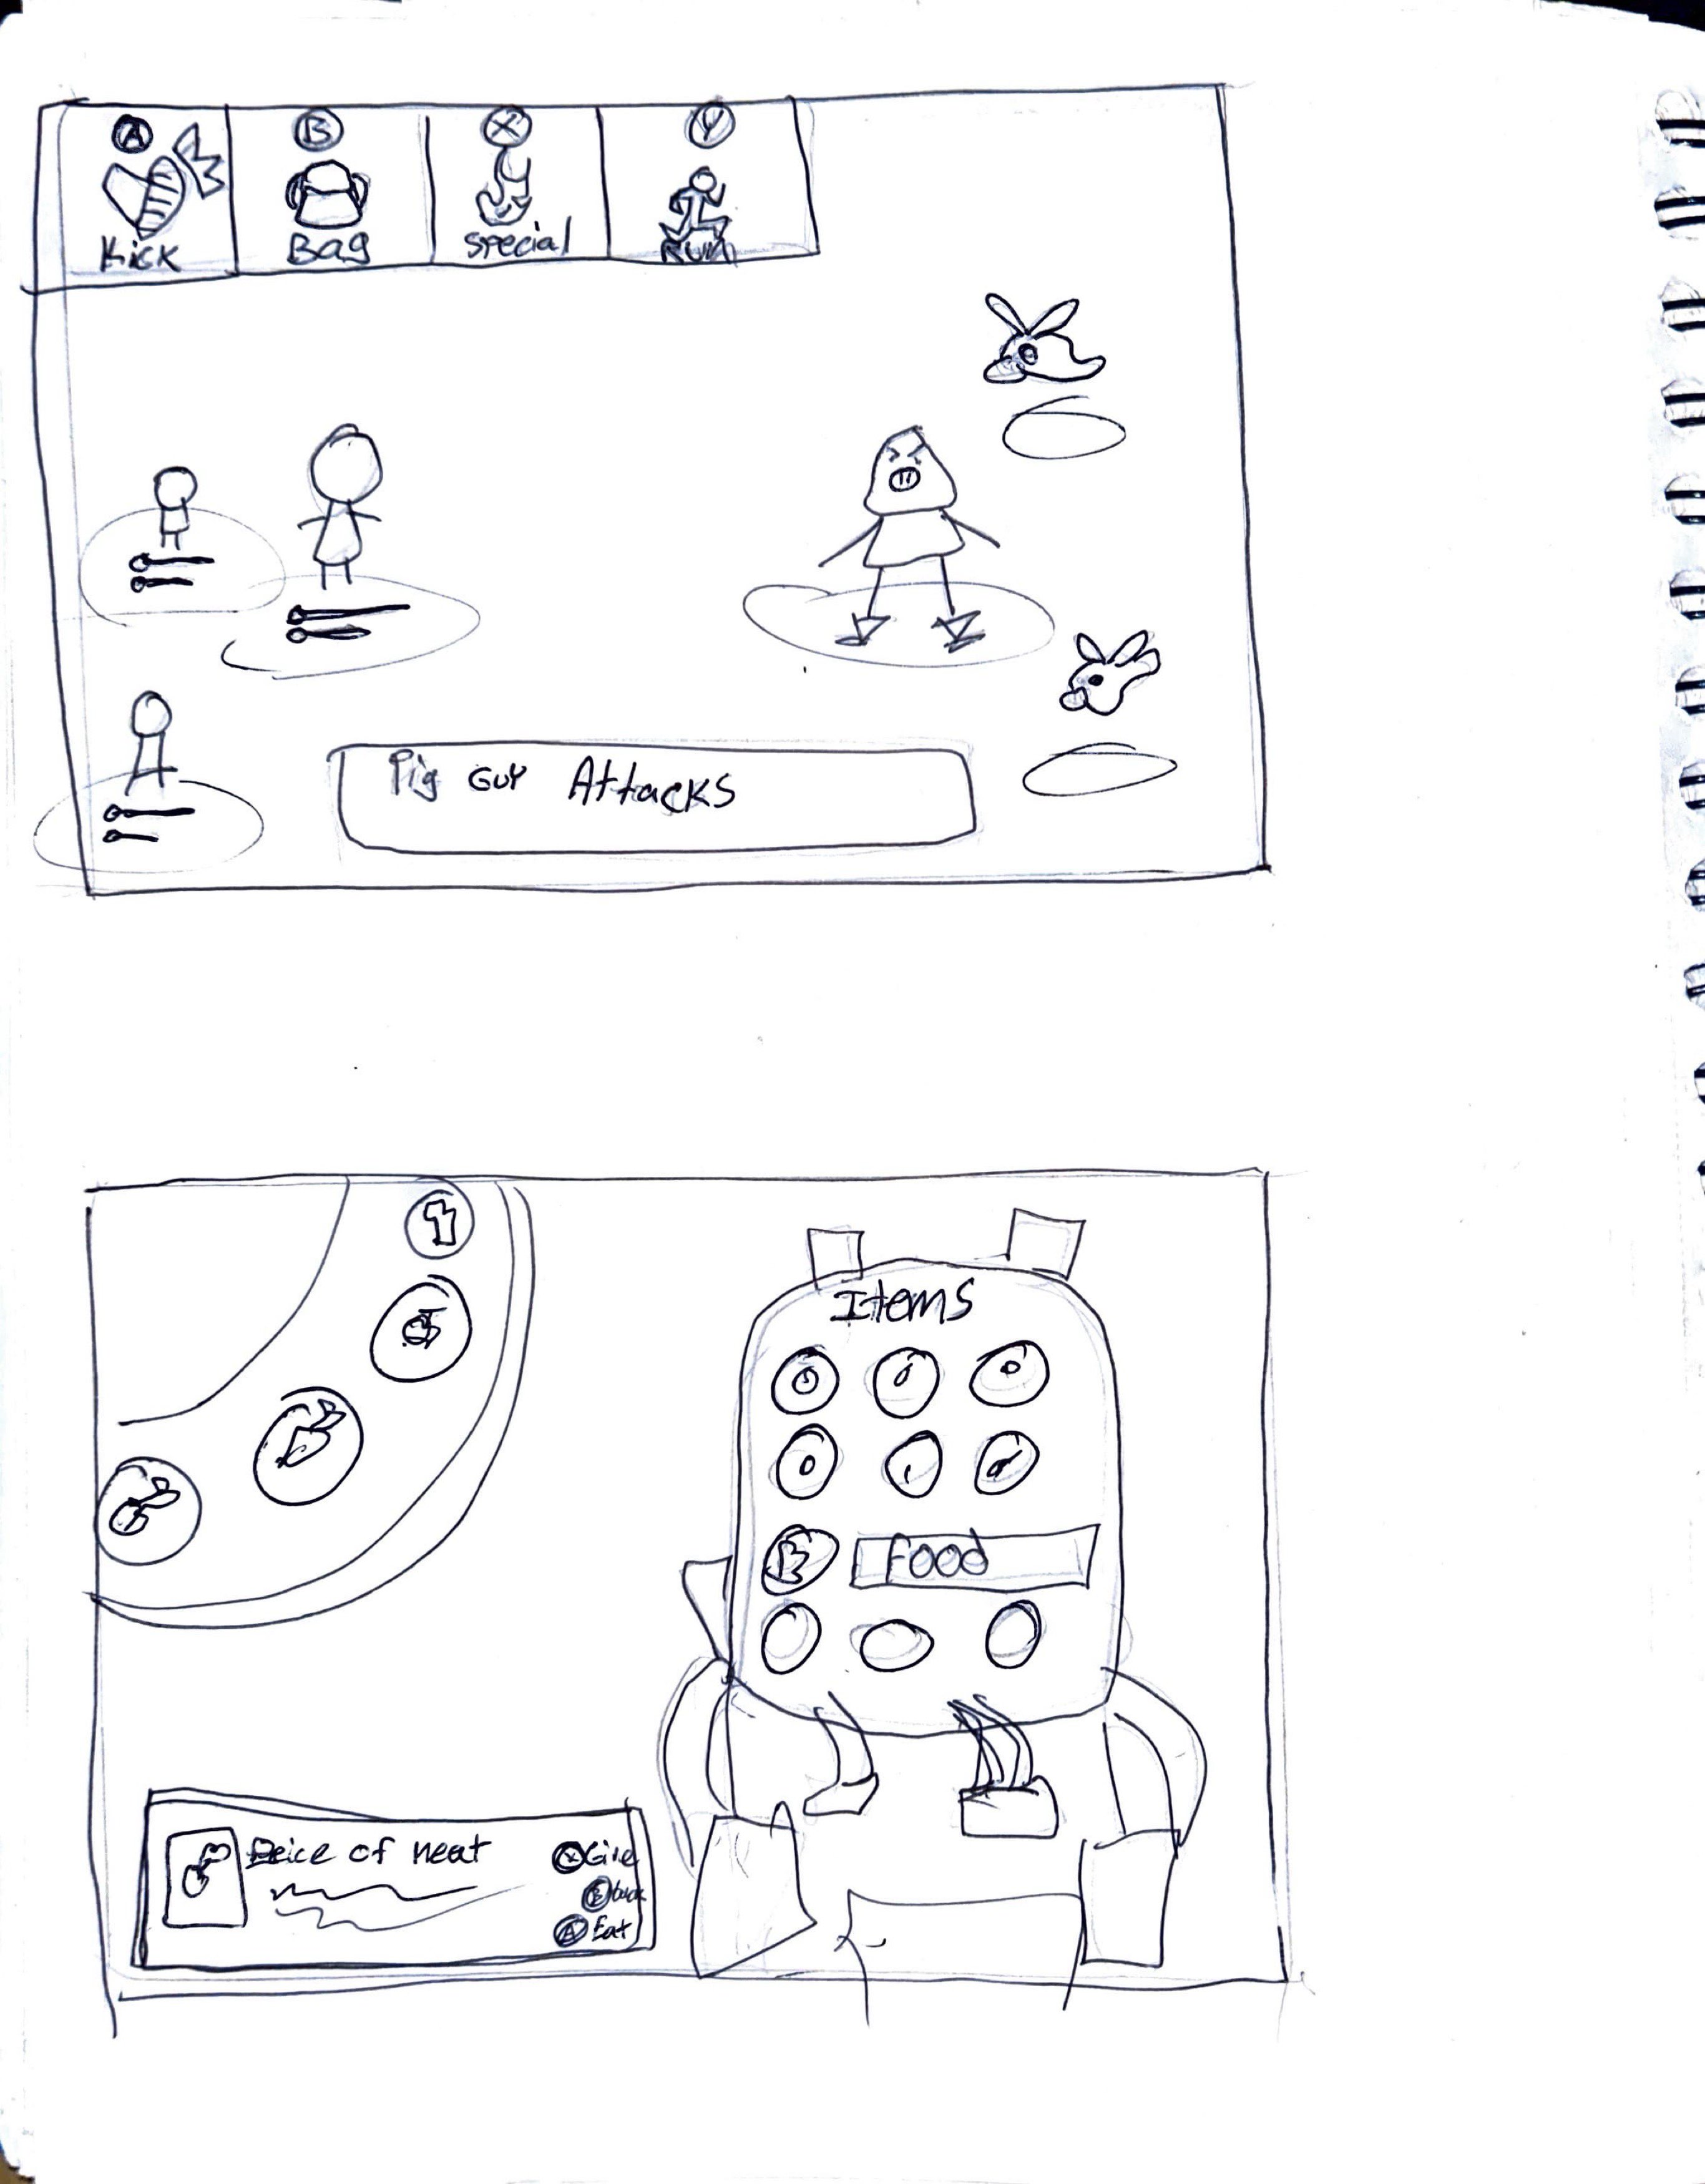 A B X Y
Kick Bag Special Run
Pig Guy Attacks
Items
B Food
Peice of meat
X Give
B back
A Eat